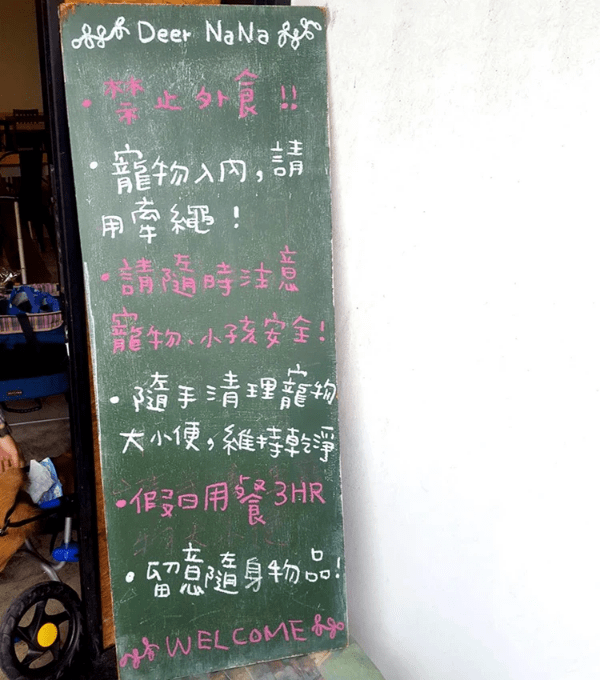 Deer NaNa
• 禁止外食!!
• 寵物入內,請
用牽繩!
• 請隨時注意
寵物、小孩安全!
• 隨手清理寵物
大小便,維持乾淨
• 假日用餐3HR
• 留意隨身物品!
WELCOME